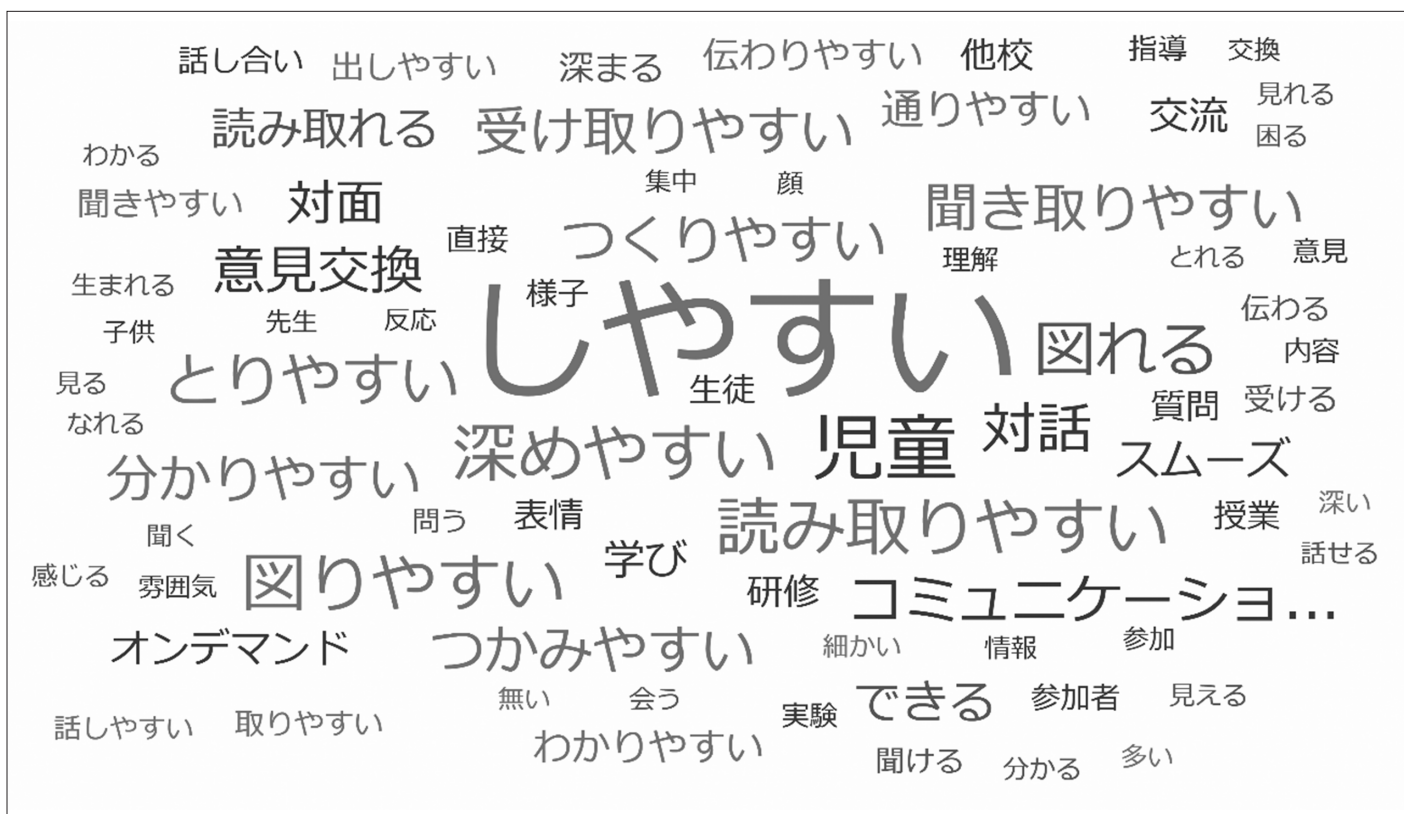 話し合い 出しやすい 深まる 伝わりやすい 他校 指導 交換
読み取れる 受け取りやすい 通りやすい 交流 見れる
わかる 困る
聞きやすい 対面 集中 顔 聞き取りやすい
意見交換 直接 つくりやすい 理解 とれる 意見
生まれる 様子 しやすい 伝わる
子供 先生 反応 図れる 内容
見る とりやすい 生徒 質問 受ける
なれる 深めやすい 児童 対話 スムーズ
分かりやすい 問う 表情 読み取りやすい 授業 深い
聞く 学び 話せる
感じる 雰囲気 図りやすい 研修 コミュニケーショ...
オンデマンド つかみやすい 細かい 情報 参加
無い 会う できる 参加者 見える
話しやすい 取りやすい わかりやすい 実験 聞ける 分かる 多い